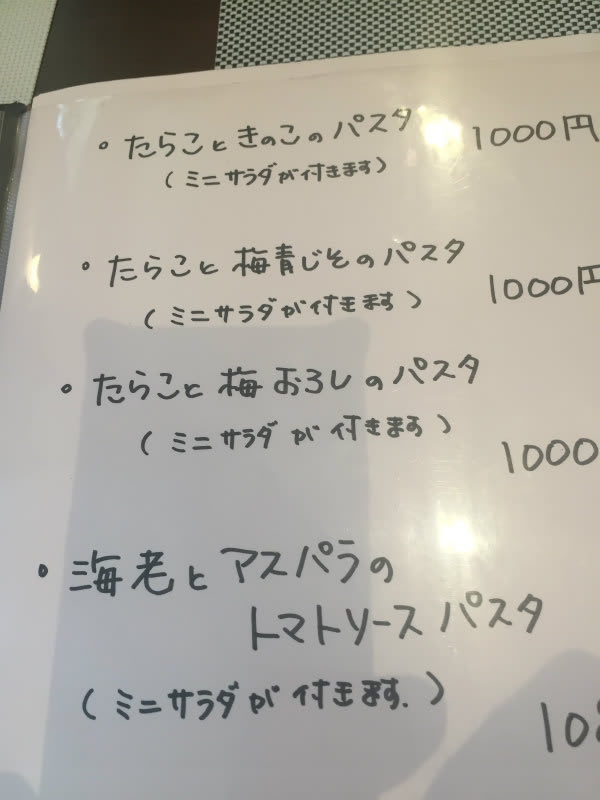 ・たらこときのこのパスタ 1000円
(ミニサラダが付きます)
・たらこと梅青じそのパスタ 1000円
(ミニサラダが付きます)
・たらこと梅おろしのパスタ
(ミニサラダが付きます)
1000
・海老とアスパラの
トマトソースパスタ
(ミニサラダが付きます.)